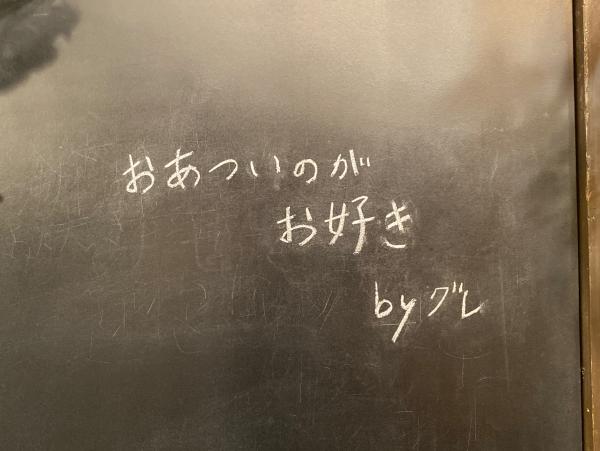 おあついのが
お好き
byグレ